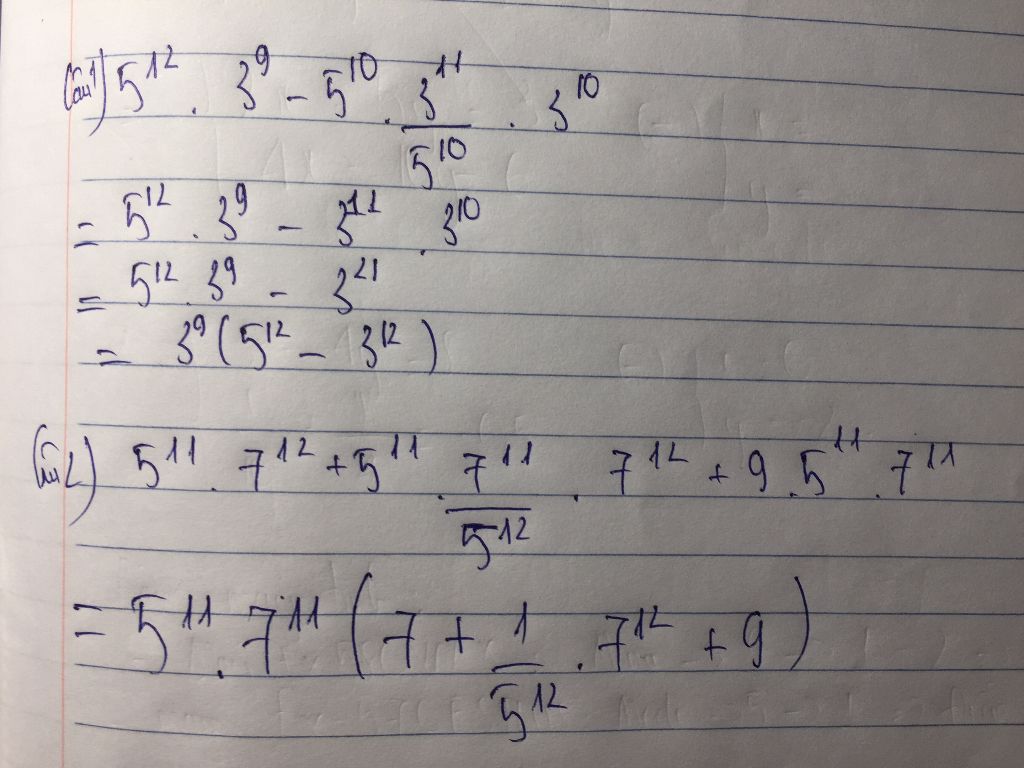 Bài 1) 5^12 . 3^9 - 5^10 . 3^11/5^10 . 3^10
= 5^12 . 3^9 - 3^11 . 3^10
= 5^12 . 3^9 - 3^21
= 3^9 (5^12 - 3^12)
Bài 2) 5^11 . 7^12 + 5^11 . 7^11/5^12 . 7^12 + 9 . 5^11 . 7^11
= 5^11 . 7^11 (7 + 1/5^12 . 7^12 + 9)